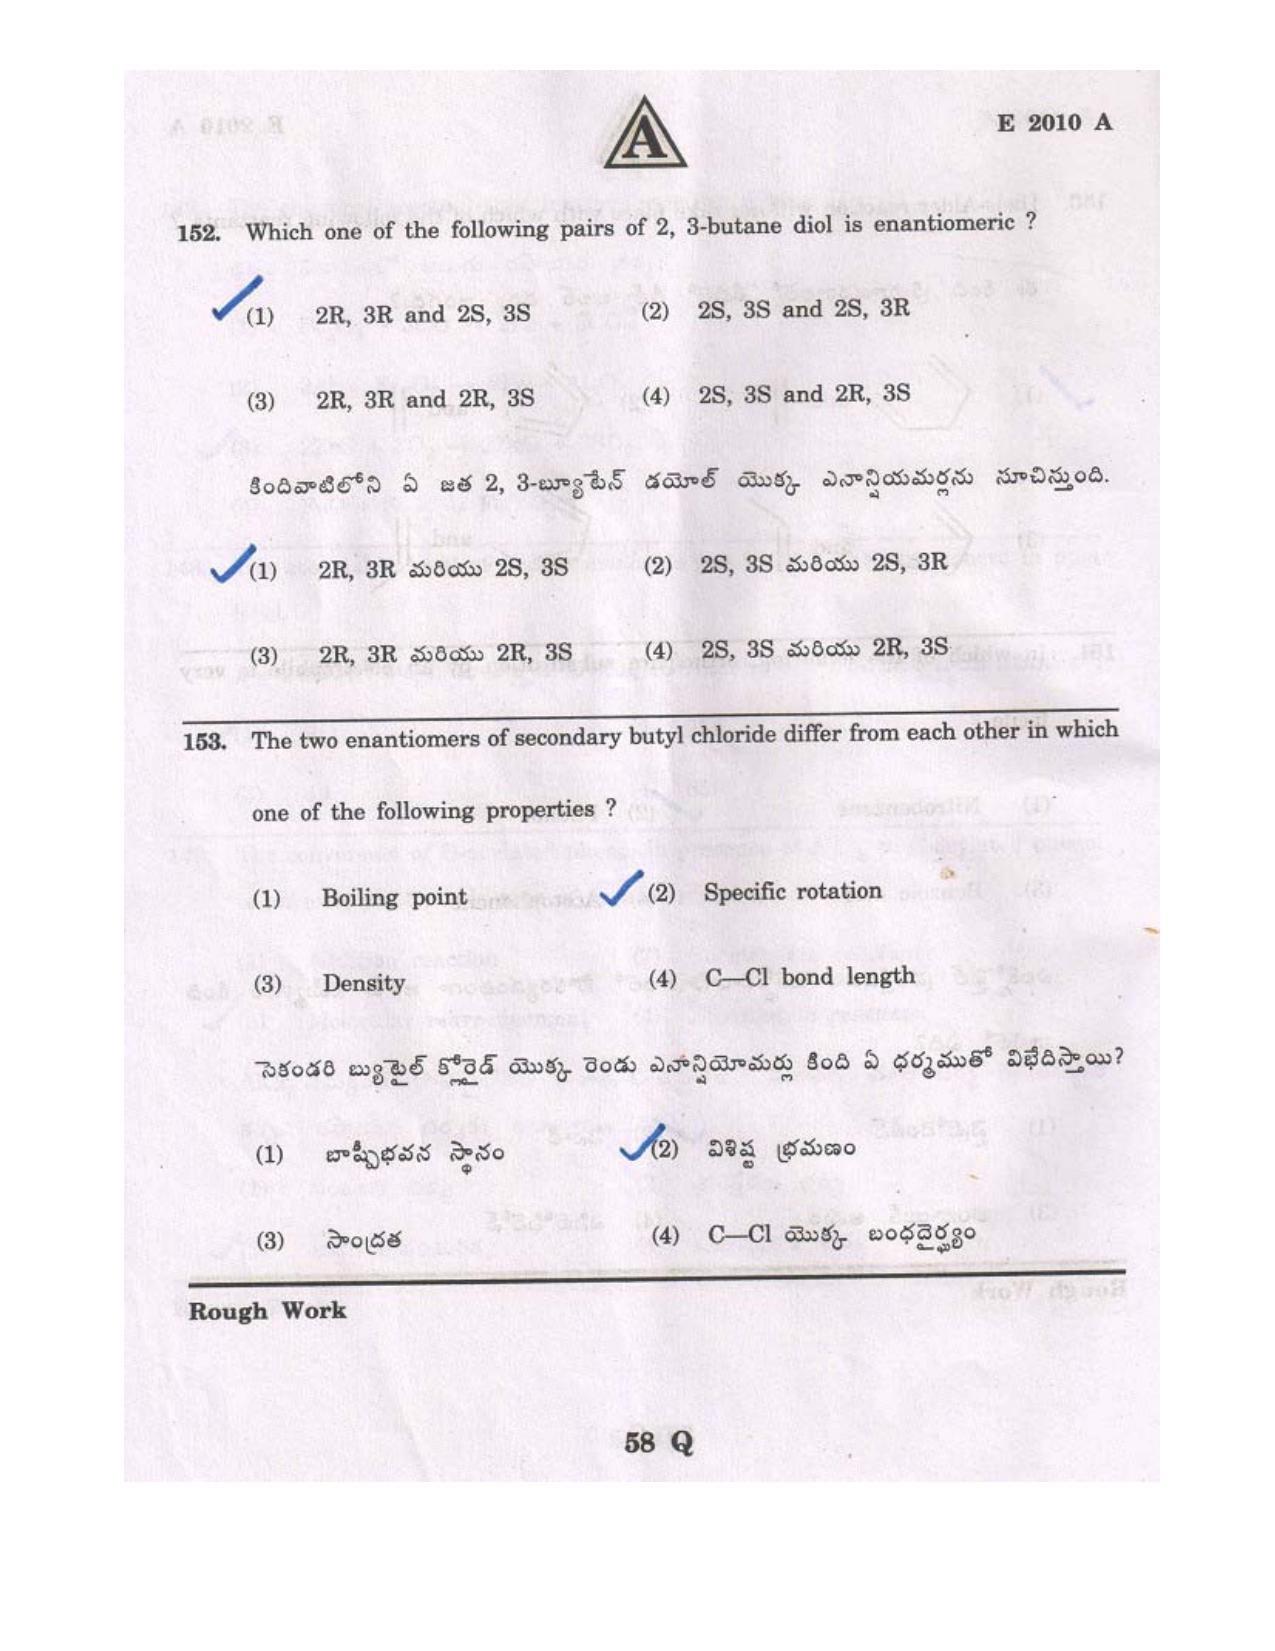 A
E 2010 A
152. Which one of the following pairs of 2, 3-butane diol is enantiomeric ?
(1) 2R, 3R and 2S, 3S (2) 2S, 3S and 2S, 3R
(3) 2R, 3R and 2R, 3S (4) 2S, 3S and 2R, 3S
కిందివాటిలోని ఏ జత 2, 3-బ్యూటేన్ డయోల్ యొక్క ఎనాన్షియమర్లను సూచిస్తుంది.
(1) 2R, 3R మరియు 2S, 3S (2) 2S, 3S మరియు 2S, 3R
(3) 2R, 3R మరియు 2R, 3S (4) 2S, 3S మరియు 2R, 3S
153. The two enantiomers of secondary butyl chloride differ from each other in which
one of the following properties ?
(1) Boiling point (2) Specific rotation
(3) Density (4) C—Cl bond length
సెకండరి బ్యుటైల్ క్లోరైడ్ యొక్క రెండు ఎనాన్షియోమర్లు కింది ఏ ధర్మముతో విభేదిస్తాయి?
(1) బాష్పీభవన స్థానం (2) విశిష్ట భ్రమణం
(3) సాంద్రత (4) C—Cl యొక్క బంధదైర్ఘ్యం
Rough Work
58 Q